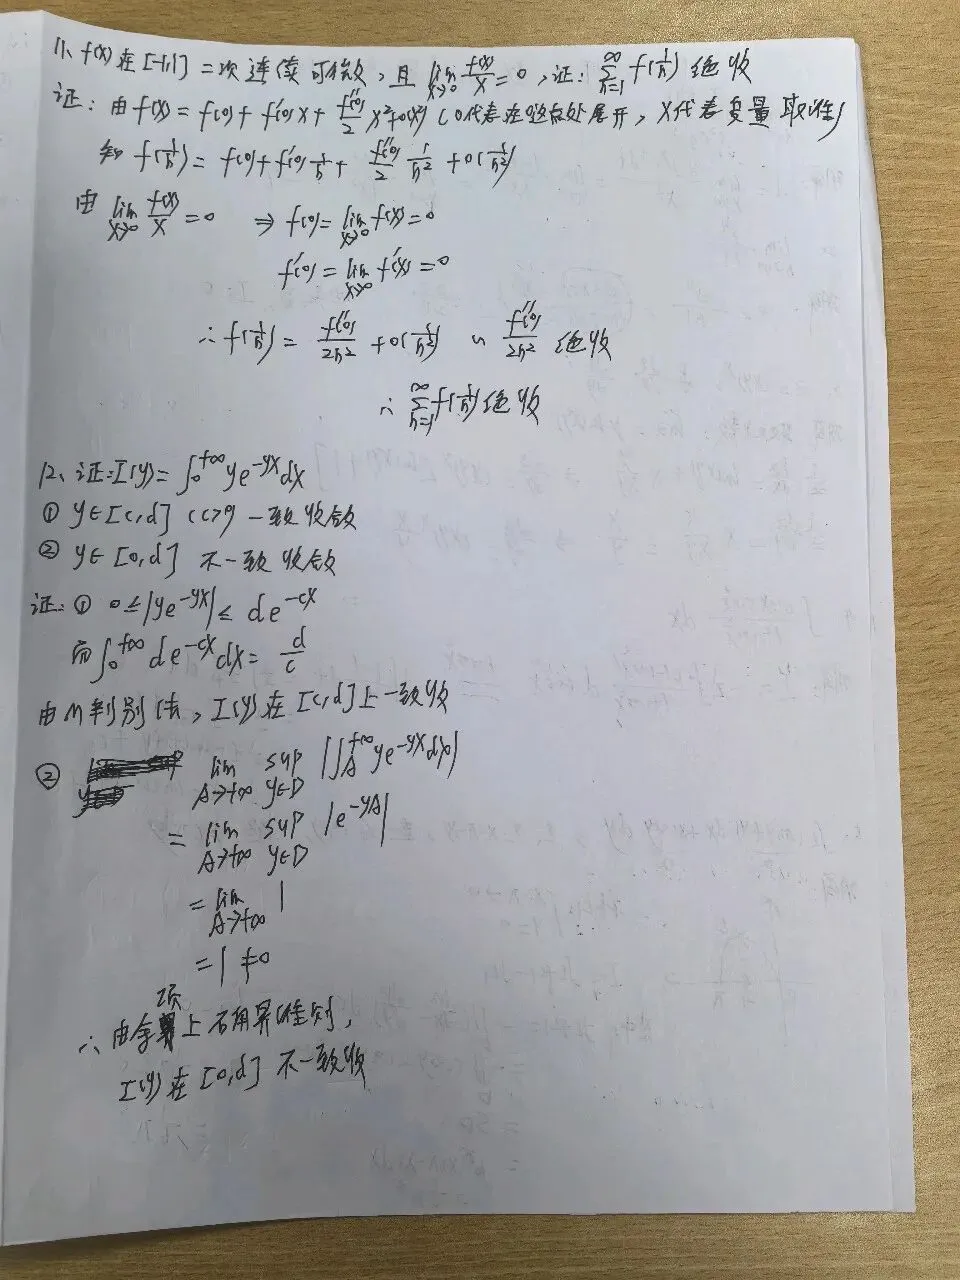 11、f(x)在[-1,1]二次连续可微,且lim_{x→0} f(x)/x=0,证:∑_{n=1}^{∞} f(1/n)绝收
证:由f(x)=f(0)+f'(0)x+f''(0)/2 x²+o(x²)(0代表在这点处展开,x代表变量取谁)
知f(1/n)=f(0)+f'(0)1/n+f''(0)/2 1/n²+o(1/n²)
由lim_{x→0} f(x)/x=0 ⇒ f(0)=lim_{x→0} f(x)=0
f'(0)=lim_{x→0} f'(x)=0
∴f(1/n)=f''(0)/2n²+o(1/n²) ~ f''(0)/2n² 绝收
∴∑_{n=1}^{∞} f(1/n)绝收
12、证:I(y)=∫_0^{+∞} ye^{-yx}dx
① y∈[c,d] (c>0) 一致收敛
② y∈[0,d] 不一致收敛
证:① 0≤|ye^{-yx}|≤de^{-cx}
而∫_0^{+∞} de^{-cx}dx=d/c
由M判别法,I(y)在[c,d]上一致收
② lim_{A→+∞} sup_{y∈D} |∫_A^{+∞} ye^{-yx}dx|
=lim_{A→+∞} sup_{y∈D} |e^{-yA}|
=lim_{A→+∞} 1
=1≠0
∴由余项上确界准则,
I(y)在[0,d]不一致收